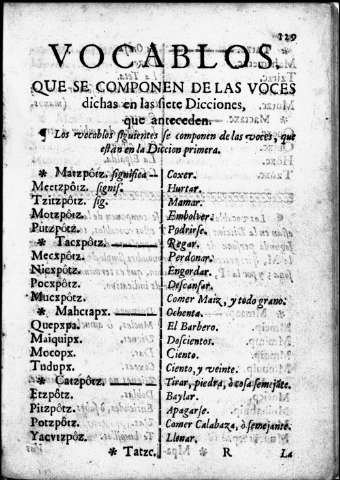 129
VOCABLOS
QUE SE COMPONEN DE LAS VOCES
dichas en las siete Dicciones,
que anteceden.
¶ Los vocablos siguientes se componen de las voces, que
están en la Diccion primera.
* Maitzpôtz. significa Coxer.
Meetzpôtz. signif. Hurtar.
Tzitzpôtz. sig. Mamar.
Motzpôtz. Embolver.
Putzpôtz. Podrirse.
* Tacxpôtz. Regar.
Mecxpôtz. Perdonar.
Nicxpôtz. Engordar.
Pocxpôtz. Descansar.
Mucxpôtz. Comer Maiz, y todo grano.
* Mahctapx. Ochenta.
Quepxpa. El Barbero.
Maiquipx. Doscientos.
Mocopx. Ciento.
Tudupx. Ciento, y veinte.
* Catzpôtz. Tirar, piedra, ò cosa semejāte.
Etzpôtz. Baylar.
Pitzpôtz. Apagarse.
Potzpôtz. Comer Calabaza, ò semejante.
Yacvtzpôtz. Llenar.
* Tatzc. R La